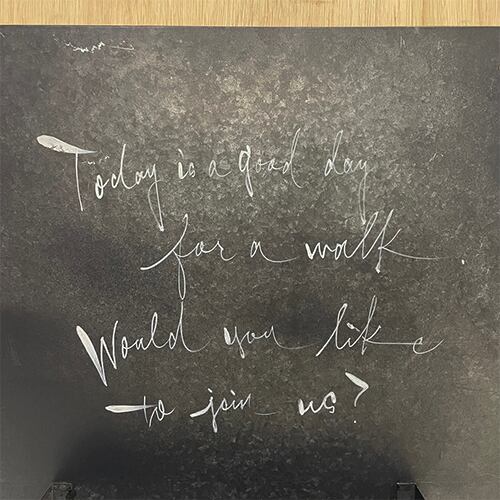 Today is a good day
for a walk.
Would you like
to join us?